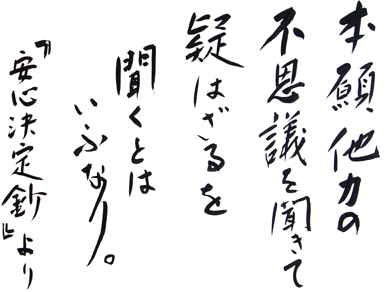 本願、他力の
不思議を聞きて
疑はざるを
聞くとは
いふなり。
『安心決定鈔』より